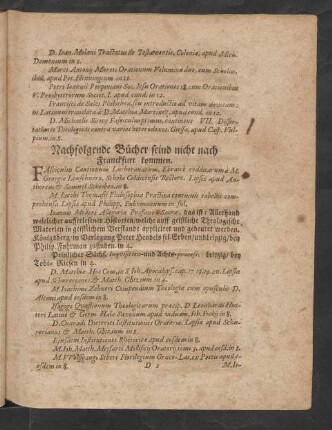 D. Ioan. Molani Tractatus de Testamentis, Coloniæ, apud
Demenium in 8.
Marci Antonij Mureti Orationum Volumina duo, cum
apud Henningium in 12.
Petri Ioannis Perpiniani Soc. Iesu Orationes 18. cum Orationibus
V. Presbyterorum Societ. I. apud eund. in 12.
Francisci de Sales Philothea, seu introductio ad vitam devotam:
in Latinum translata à D. Matthia Martinez, apud eund. in 12.
D. Michaëlis Fasciculus primus, continens VII. Disser-
tationes Theologicas contra varios heterodoxos. apud Casp.
in 8.
Nachfolgende Bücher seind nicht nach
Franckfurt kommen.
FAsciculus Cantionum Lutheranarum, Ebraicè redditarum à M.
Georgio Scholæ Rectore. Lipsiæ apud
& Samuel Scheiben, in 8.
M. Jacobi Thomasii Philosophia Practica continuis tabellis com-
prehensa Lipsiæ apud Philipp. Fuhrmannum in fol.
Joannis Adami Alegoria Profano-Sacra, das ist: Allerhand
weltlicher außerlesener Historien, welche auff geistliche Theologische
Materien in geistlichem Verstande appliciret und gedeutet werden.
Königsberg, in Verlegung Peter Hendels sel. Erben, und Leipzig/bey
Philip. Fuhrman zufinden, in 4.
Peinlicher Sächs. Inquisitions- und Achts-process. Leipzig/ bey
Tobiæ Riesen in 4.
D. Matthiæ Hoë Com. in S. Joh. Apocalyps. cap. 17. 18. 19. 20. Lipsiæ
apud Schurerianos & Matth. Götzium, in 4.
M. Joachimi Zehneri Compendium Theologiæ cum opusculis D.
apud eosdem in 8.
Quæstionum Theologicarum præcip. D. Leonhardi Hut-
teri Latinè & Germ. Halæ Saxonum apud viduam, Joh. in 8.
D. Conradi Dieterici Institutiones Oratoriæ. Lipsiæ apud Schu-
rerianos & Matth. Götzium in 8.
Ejusdem Institutiones Rhetoricæ apud eosdem in 8.
M. Joh. Matth. Meyfarti Mellificij Oratorij tom. 3. apud eosd. in 8.
M. VVolfgangi Seberi Florilegium Græco-Lat. ex Poëtis apud
eosdem in 8.
D 2
M. Jo-